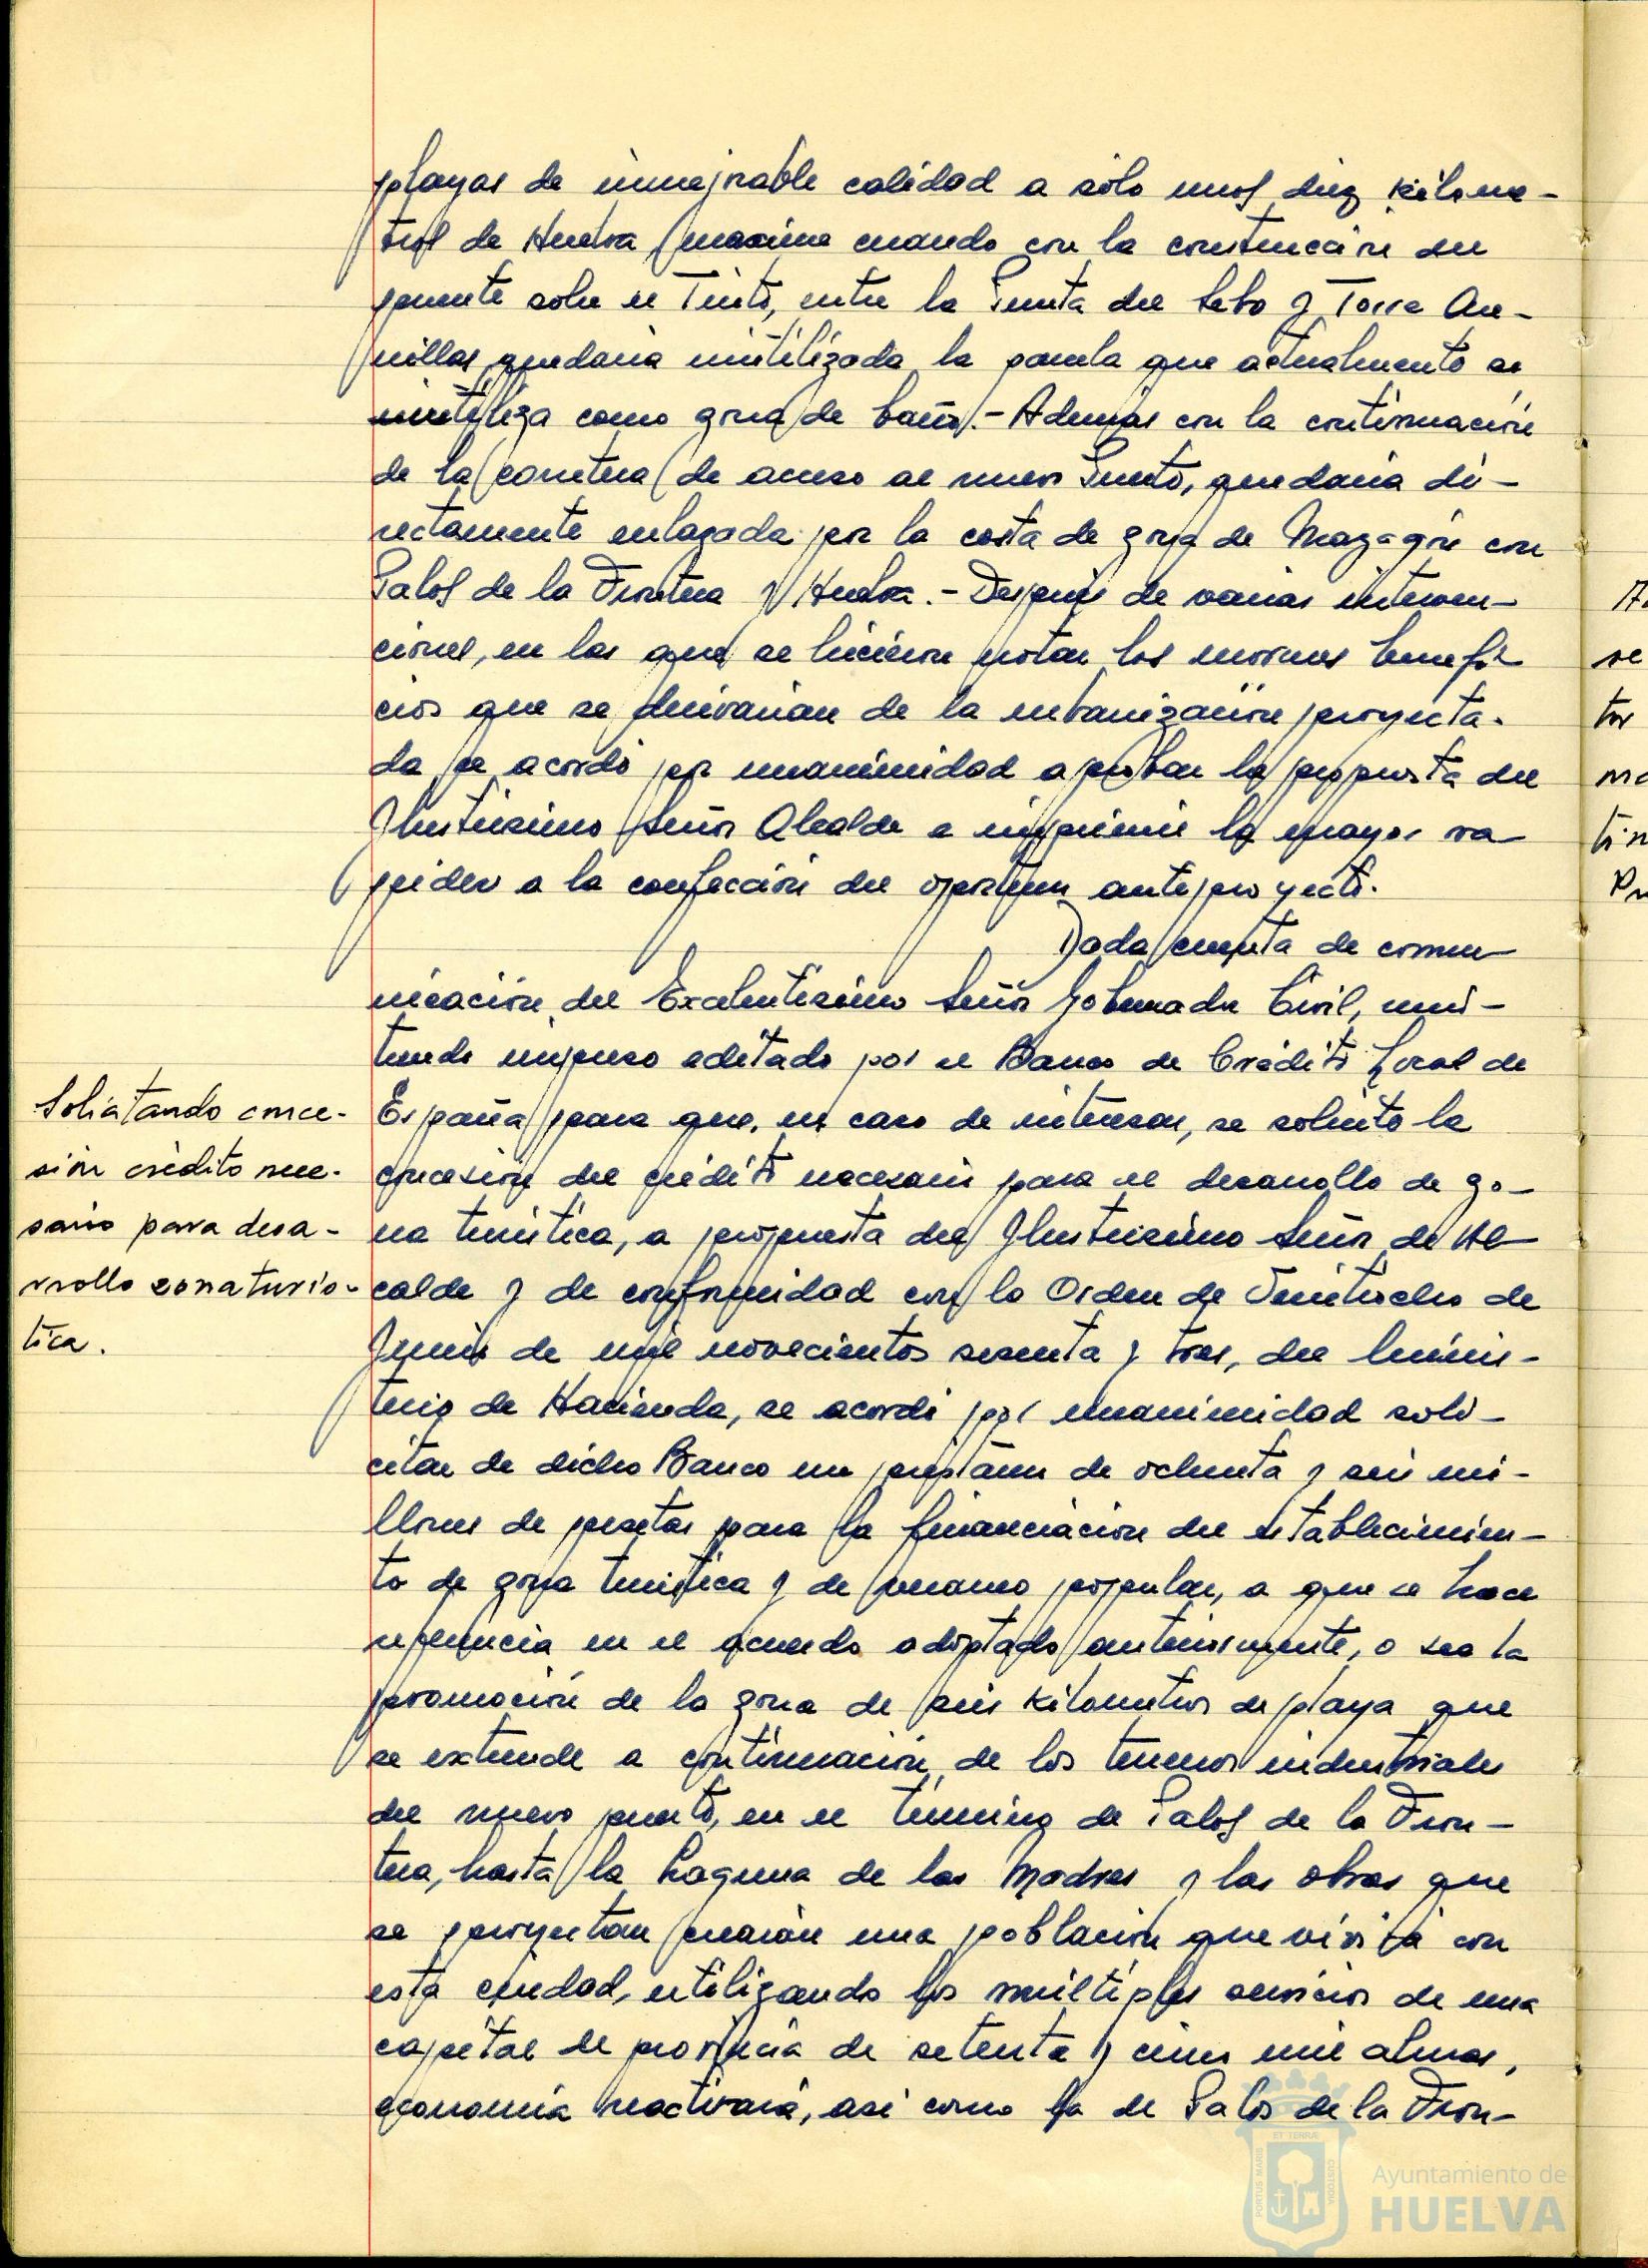 playas de inmejorable calidad a sólo unos diez kilóme-
tros de Huelva, maxime cuando con la construcción del
puente sobre el Tinto, entre la Punta del Sebo y Torre Are-
nillas, quedaria inutilizada la parcela que actualmente se
utiliza como zona de baños.- Además con la continuación
de la carretera de acceso al nuevo Puerto, quedaria di-
rectamente enlazada por la costa de zona de Mazagón con
Palos de la Frontera y Huelva.- Después de varias interven-
ciones, en las que se hicieron notar los enormes benefi-
cios que se derivarian de la urbanización proyecta-
da, se acordó por unanimidad aprobar la propuesta del
Ilustrisimo Señor Alcalde e imprimir la mayor ra-
pidez a la confección del oportuno anteproyecto.
Dada cuenta de comu-
nicación del Excelentisimo Señor Gobernador Civil, remi-
tiendo impreso editado por el Banco de Crédito Local de
Solicitando conce-
sión crédito nece-
sario para desa-
rrollo zona turis-
tica.
España para que, en caso de interesar, se solicite la
concesión del crédito necesario para el desarrollo de zo-
na turistica, a propuesta del Ilustrisimo Señor de Al-
calde y de conformidad con lo Orden de Veintiocho de
Junio de mil novecientos sesenta y tres, del Minis-
terio de Hacienda, se acordó por unanimidad soli-
citar de dicho Banco un préstamo de ochenta y seis mi-
llones de pesetas para la financiación del establecimien-
to de zona turistica y de veraneo popular, a que se hace
referencia en el acuerdo adoptado anteriormente, o sea la
promoción de la zona de seis kilometros de playa que
se extiende a continuación de los terrenos industriales
del nuevo puerto, en el término de Palos de la Fron-
tera, hasta la Laguna de las Madres y las obras que
se proyectan crearán una población que vivirá con
esta ciudad, utilizando los múltiples servicios de una
capital de provincia de setenta y cinco mil almas,
economía reactivará, asi como la de Palos de la Fron-
A.
se
tor
mo
tin
Pu
PORTUS MARIS
ET TERRÆ
CUSTODIA
Ayuntamiento de
HUELVA